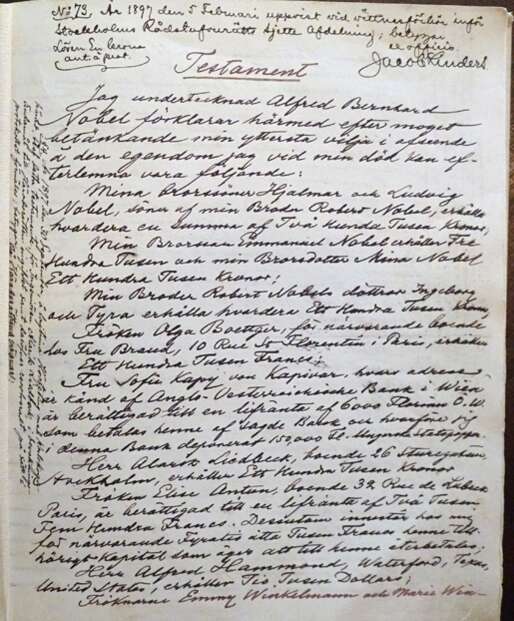 No 73. År 1897 den 5 Februari uppvist vid vittnesförhör inför
Stockholms Rådstufvurätts sjette Afdelning; betygar
ex officio.
Testament
Jag undertecknad Alfred Bernhard
Nobel förklarar härmed efter moget
betänkande min yttersta vilja i afseende
å den egendom jag vid min död kan ef-
terlemna vara följande:
Mina Brorsöner Hjalmar och Ludvig
Nobel, söner af min Broder Robert Nobel, erhålla
hvardera en summa af Två Hundra Tusen Kronor;
Min Brorson Emmanuel Nobel erhåller Tre
Hundra Tusen och min Brorsdotter Mina Nobel
Ett Hundra Tusen Kronor;
Min Broder Robert Nobels döttrar Ingeborg
och Tyra erhålla hvardera Ett Hundra Tusen Kronor;
Fröken Olga Boettger, för närvarande boende
hos Fru Brand, 10 Rue St Florentin i Paris, erhåller
Ett Hundra Tusen Francs;
Fru Sofie Kapy von Kapivar, hvars adress
är känd af Anglo-Oesterreichische Bank i Wien
är berättigad till en lifränta af 6000 Florins Ö.W.
som betalas henne af sagde Bank och hvarföre jag
i denna Bank deponerat 150,000 Fl. i Ungerska Statspapper;
Herr Alarik Liedbeck, boende 26 Sturegatan,
Stockholm, erhåller Ett Hundra Tusen Kronor
Fröken Elise Antun, boende 32 Rue de Lubeck
Paris, är berättigad till en lifränta af Två Tusen
Fem Hundra Francs. Dessutom innestår hos mig
för närvarande Fyratio åtta Tusen Francs henne till-
hörigt Kapital som äger att till henne återbetalas;
Herr Alfred Hammond, Waterford, Texas,
United States, erhåller Tio Tusen Dollars;
Fröknarne Emmy Winkelmann och Marie Win-